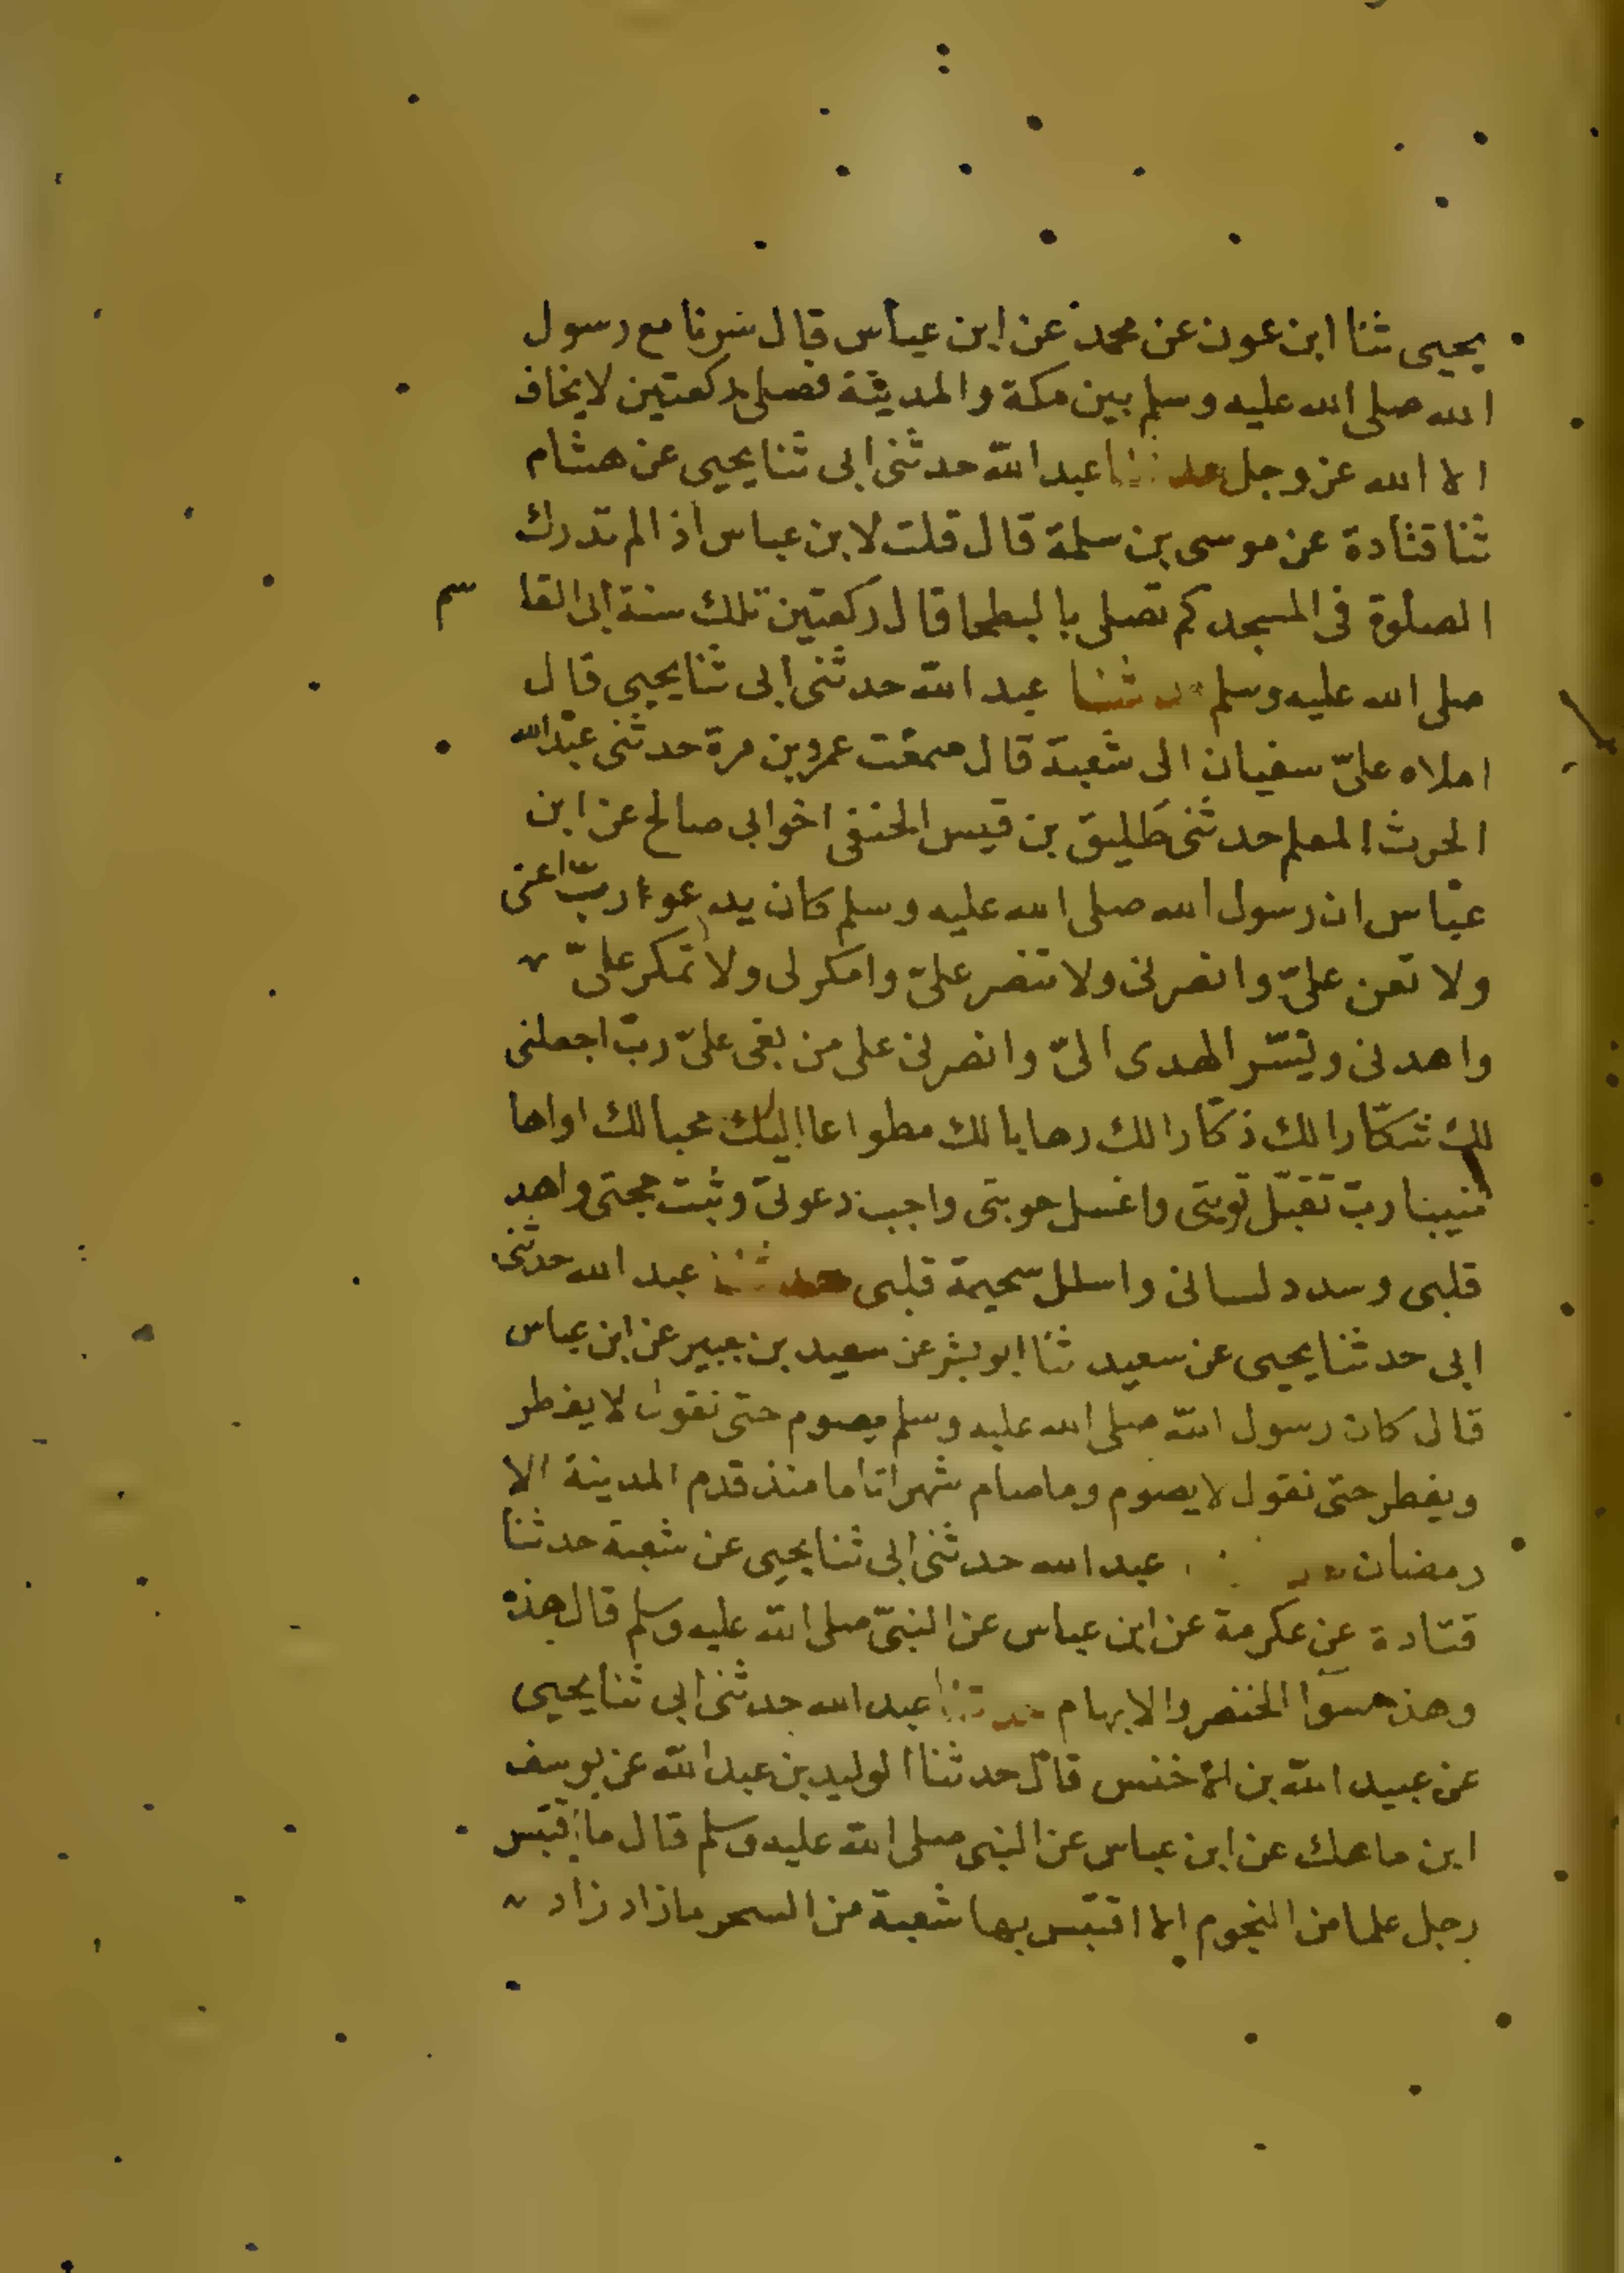 يحيى ثنا ابن عون عن محمد عن ابن عباس قال سرنا مع رسول
الله صلى الله عليه وسلم بين مكة والمدينة فصلى ركعتين لا يخاف
الا الله عز وجل حدثنا عبد الله حدثنى ابى ثنا يحيى عن هشام
ثنا قتادة عن موسى بن سلمة قال قلت لابن عباس اذا لم تدرك
الصلوة فى المسجد كم تصلى بالبطحا قال ركعتين تلك سنة ابى القاسم
صلى الله عليه وسلم حدثنا عبد الله حدثنى ابى ثنا يحيى قال
املاه علىّ سفيان الى شعبة قال سمعت عمرو بن مرة حدثنى عبد الله
الحرث المعلم حدثنى طَليق بن قيس الحنفى اخو ابى صالح عن ابن
عباس ان رسول الله صلى الله عليه وسلم كان يدعو ربّ اعنى
ولا تعن علىّ وانصرنى ولا تنصر علىّ وامكر لى ولا تمكر علىّ
واهدنى ويسّر الهدى الىّ وانصرنى على من بغى علىّ ربّ اجعلنى
لك شكّارا لك ذكّارا لك رهابا لك مطواعا اليك محبا لك اواها
منيبا ربّ تقبّل توبتى واغسل حوبتى واجب دعوتى وثبت حجتى واهد
قلبى وسدد لسانى واسلل سحيمة قلبى حدثنا عبد الله حدثنى
ابى حدثنا يحيى عن سعيد ثنا ابو بشر عن سعيد بن جبير عن ابن عباس
قال كان رسول الله صلى الله عليه وسلم يصوم حتى نقول لا يفطر
ويفطر حتى نقول لا يصوم وما صام شهرا تاما منذ قدم المدينة الا
رمضان عبد الله حدثنى ابى ثنا يحيى عن شعبة حدثنا
قتادة عن عكرمة عن ابن عباس عن النبىّ صلى الله عليه وسلم قال هذه
وهذه سوآ الخنصر والابهام حدثنا عبد الله حدثنى ابى ثنا يحيى
عن عبيد الله بن الاخنس قال حدثنا الوليد بن عبد الله عن يوسف
ابن ماهك عن ابن عباس عن النبى صلى الله عليه وسلم قال ما اقتبس
رجل علما من النجوم الا اقتبس بها شعبة من السحر ما زاد زاد